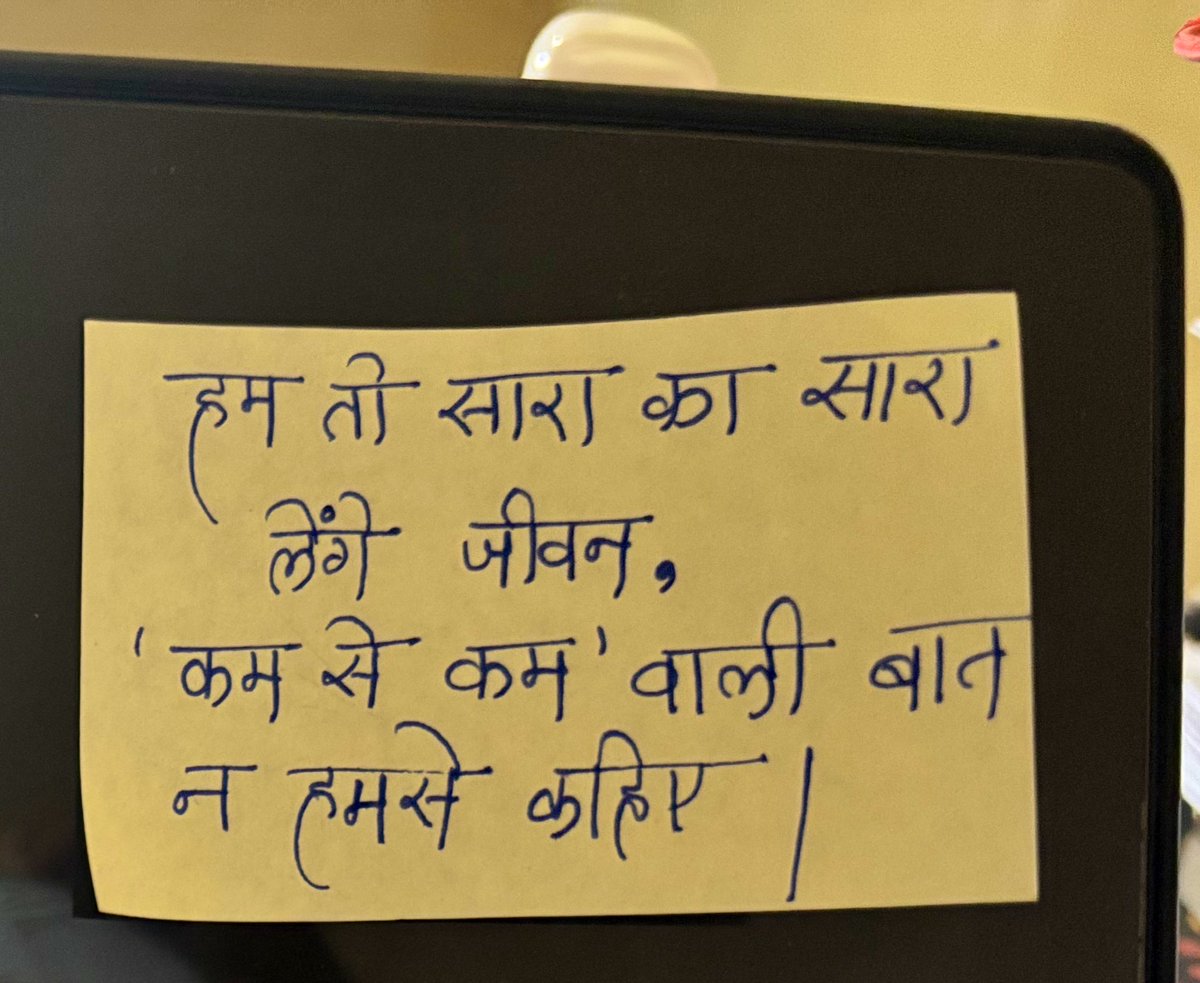 हम तो सारा का सारा
लेंगे जीवन,
'कम से कम' वाली बात
न हमसे कहिए।